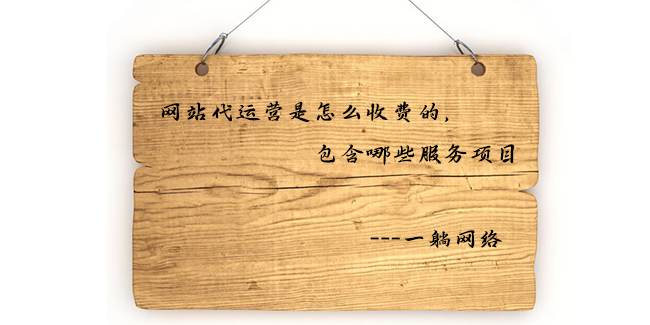 网站代运营是怎么收费的，
包含哪些服务项目
---一躺网络